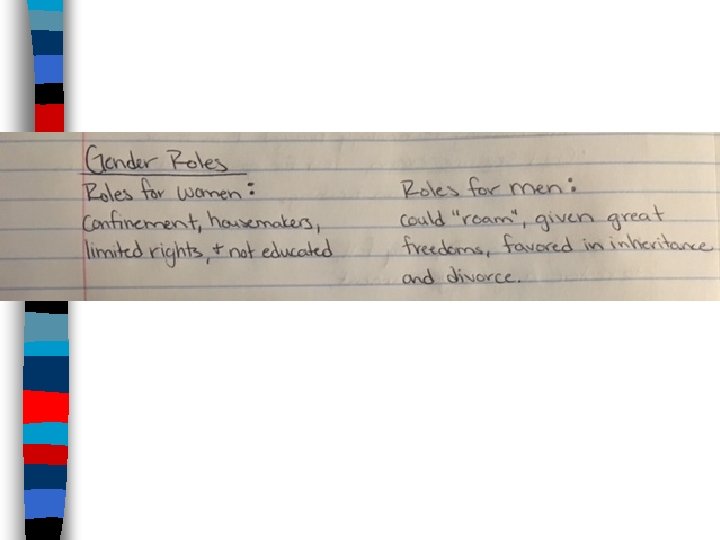 Gender Roles
Roles for women:
Confinement, housemakers,
limited rights, + not educated
Roles for men:
could "roam", given great
freedoms, favored in inheritance
and divorce.